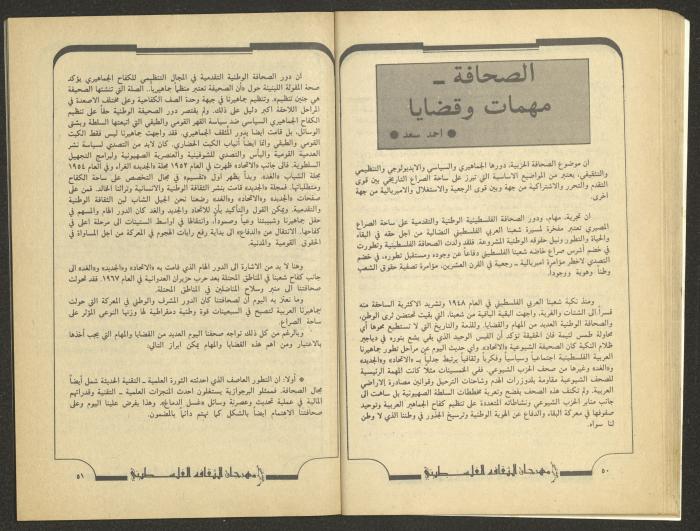 الصحافة ــ
مهمات وقضايا
● احمد سعد ●
ان موضوع الصحافة الحزبية، دورها الجماهيري والسياسي والايديولوجي والتنظيمي
والتثقيفي، يعتبر من المواضيع الاساسية التي تبرز على ساحة الصراع التاريخي بين قوى
التقدم والتحرر والاشتراكية من جهة وبين قوى الرجعية والاستغلال والامبريالية من جهة
اخرى.
ان تجربة، مهام، ودور الصحافة الفلسطينية الوطنية والتقدمية على ساحة الصراع
المصيري تعتبر مفخرة لمسيرة شعبنا العربي النضالية من اجل حقه في البقاء
والحياة والتطور ونيل حقوقه الوطنية المشروعة. فلقد ولدت الصحافة الفلسطينية وتطورت
في خضم أشرس صراع خاضه شعبنا الفلسطيني دفاعاً عن وجوده ومستقبل تطوره، في خضم
التصدي لاخطر مؤامرة امبريالية ـ رجعية في القرن العشرين، مؤامرة تصفية حقوق الشعب
وطناً وهوية ووجوداً.
ومنذ نكبة شعبنا العربي الفلسطيني في العام ١٩٤٨ وتشريد الاكثرية الساحقة منه
قسراً الى الشتات والغربة، واجهت البقية الباقية من شعبنا، التي بقيت تحتضن ثرى الوطن،
والصحافة الوطنية العديد من المهام والقضايا. وللذمة والتاريخ التي لا تستطيع محوها أي
محاولة طمس لئيمة فان الحقيقة تؤكد أن القبس الوحيد الذي بقي يشع بنوره في دياجير
ظلام النكبة كان الصحيفة الشيوعية «الاتحاد». واي حديث اليوم عن مراحل تطور جماهيرنا
العربية الفلسطينية اجتماعياً وسياسياً وفكرياً وثقافياً يرتبط جدلياً بـ «الاتحاد» و«الجديد»
و«الغد» وغيرها من صحف الحزب الشيوعي. ففي الخمسينات مثلاً كانت المهمة الرئيسية
للصحف الشيوعية مقاومة بلدوزرات الهدم وشاحنات الترحيل وقوانين مصادرة الاراضي
العربية. ولم تكتف هذه الصحف بفضح وتعرية مخططات السلطة الصهيونية بل ساهمت الى
جانب منابر الحزب الشيوعي ونشاطاته المتعددة على تنظيم كفاح الجماهير العربية وتوحيد
صفوفها في معركة البقاء والدفاع عن الهوية الوطنية وترسيخ الجذور في وطننا الذي لا وطن
لنا سواه.
مهرجان الثقافة الفلسطيني
٥٠
ان دور الصحافة الوطنية التقدمية في المجال التنظيمي للكفاح الجماهيري يؤكد
صحة المقولة اللينينية حول «أن الصحيفة تعتبر منظماً جماهيرياً.. الصلة التي تنشئها الصحيفة
هي جنين تنظيم». وتنظيم جماهيرنا في جبهة وحدة الصف الكفاحية وعلى مختلف الاصعدة في
المراحل اللاحقة اكبر دليل على ذلك. ولم يقتصر دور الصحيفة الوطنية حقاً على تنظيم
الكفاح الجماهيري السياسي ضد سياسة القهر القومي والطبقي التي اتبعتها السلطة وبشتى
الوسائل، بل قامت ايضا بدور المثقف الجماهيري. فقد واجهت جماهيرنا ليس فقط الكبت
القومي والطبقي وانما ايضاً أنياب الكبت الحضاري. كان لابد من التصدي لسياسة نشر
العدمية القومية واليأس والتصدي للشوفينية والعنصرية الصهيونية ولبرامج التجهيل
السلطوية. فالى جانب «الاتحاد» ظهرت في العام ١٩٥٢ مجلة الجديد الغراء وفي العام ١٩٥٤
مجلة الشباب «الغد». وبدأ يظهر اول «تقسيم» في مجال التخصص على ساحة الكفاح
ومتطلباتها. فمجلة «الجديد» قامت بنشر الثقافة الوطنية والانسانية وتراثنا الخالد. فمن على
صفحات «الجديد» و«الاتحاد» و«الغد» رضعنا نحن الجيل الشاب لبن الثقافة الوطنية
والتقدمية. ويمكن القول والتأكيد بأن للاتحاد والجديد والغد كان الدور الهام والمسهم في
حقل جماهيرنا وشبيبتنا وعياً وصموداً. وانتفاظا في اواسط الستينات الى مرحلة اعلى في
كفاحها. الانتقال من «الدفاع» الى بداية رفع رايات الهجوم في المعركة من اجل المساواة في
الحقوق القومية والمدنية.
وهنا لا بد من الاشارة الى الدور الهام الذي قامت به «الاتحاد» و«الجديد» و«الغد» الى
جانب كفاح شعبنا في المناطق المحتلة بعد حرب حزيران العدوانية في العام ١٩٦٧. فقد تحولت
صحافتنا الى منبر وسلاح المناضلين في المناطق المحتلة.
وما نعتز به اليوم أن لصحافتنا كان الدور المشرف والوطني في المعركة التي حولت
جماهيرنا العربية لتصبح في السبعينات قوة وطنية دمقراطية لها وزنها النوعي المؤثر على
ساحة الصراع.
وبالرغم من كل ذلك تواجه صحفنا اليوم العديد من القضايا والمهام التي يجب أخذها
بالاعتبار ومن اهم هذه القضايا والمهام يمكن ابراز التالي:
* أولا: ان التطور العاصف الذي احدثته الثورة العلمية ـ التقنية الحديثة شمل أيضاً
مجال الصحافة. فممثلو البرجوازية يستغلون احدث المنجزات العلمية ـ التقنية وقدراتهم
المالية في عملية تحديث وعصرنة وسائل «غسل الدماغ». وهذا يفرض علينا اليوم وعلى
صحافتنا الاهتمام ايضاً بالشكل كما نهتم دائماً بالمضمون.
مهرجان الثقافة الفلسطيني
٥١